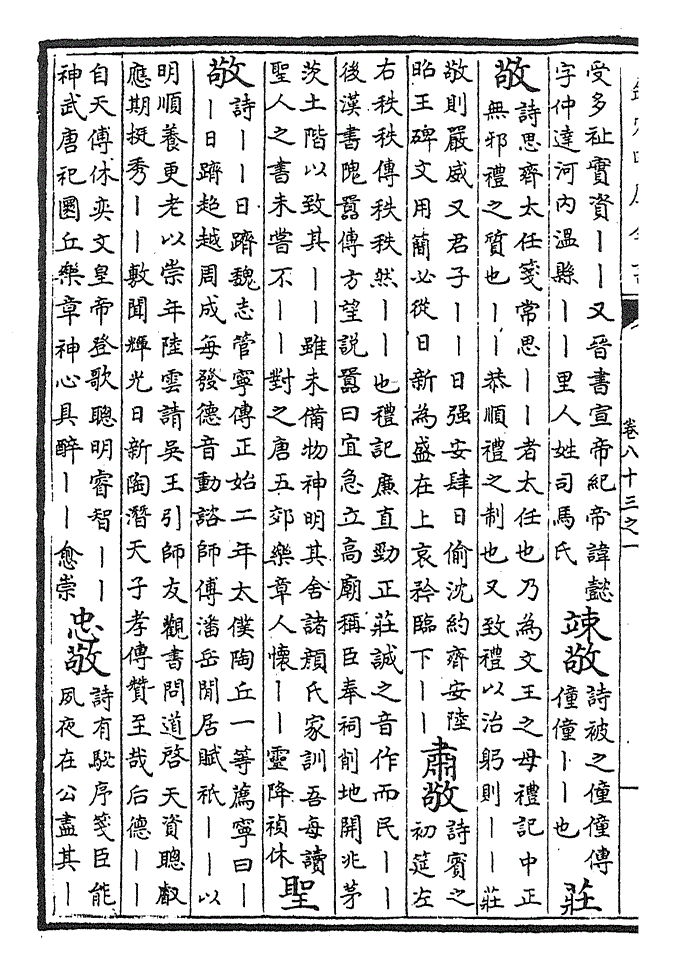 卷八十三之一
一
受多祉實資丨丨又晉書宣帝紀帝諱懿
字仲達河内溫縣丨丨里人姓司馬氏
竦敬
詩被之僮僮傳
僮僮丨丨也
莊
敬
詩思齊太任箋常思丨丨者太任也乃為文王之母禮記中正
無邪禮之質也丨丨恭順禮之制也又致禮以治躬則丨丨莊
敬則嚴威又君子丨丨日强安肆日偷沈約齊安陸
昭王碑文用簡必從日新為盛在上哀矜臨下丨丨
肅敬
詩賓之
初筵左
右秩秩傳秩秩然丨丨也禮記廉直勁正莊誠之音作而民丨丨
後漢書隗囂傳方望説囂曰宜急立高廟稱臣奉祠削地開兆茅
茨土階以致其丨丨雖未備物神明其舍諸顔氏家訓吾每讀
聖人之書未嘗不丨丨對之唐五郊樂章人懷丨丨靈降禎休
聖
敬
詩丨丨日躋魏志管寧傳正始二年太僕陶丘一等薦寧曰丨
丨日躋超越周成每發德音動諮師傅潘岳閒居賦祗丨丨以
明順養更老以崇年陸雲請吳王引師友觀書問道啓天資聰叡
應期挺秀丨丨敷聞輝光日新陶潛天子孝傳贊至哉后德丨丨
自天傅休奕文皇帝登歌聰明睿智丨丨
神武唐祀圜丘樂章神心具醉丨丨愈崇
忠敬
詩有駜序箋臣能
夙夜在公盡其丨